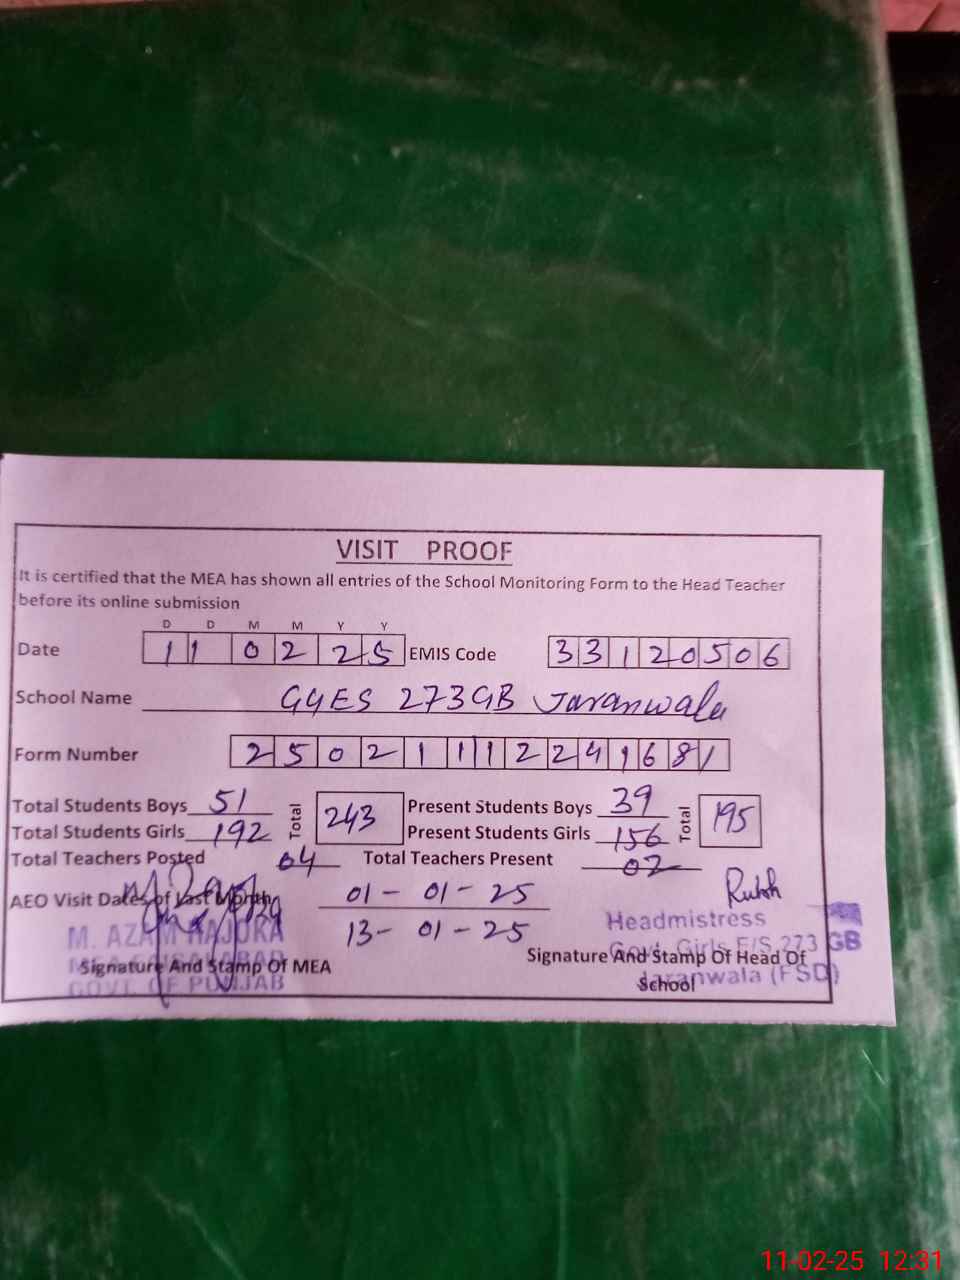 VISIT PROOF
It is certified that the MEA has shown all entries of the School Monitoring Form to the Head Teacher
before its online submission
D D M M Y Y
Date 11 02 25 EMIS Code 33120506
School Name GGES 273GB Jaranwala
Form Number 250211112241681
Total Students Boys 51 Total 243 Present Students Boys 39 Total 195
Total Students Girls 192 Present Students Girls 156
Total Teachers Posted 04 Total Teachers Present 02
AEO Visit Dates of Last Month 01-01-25
13-01-25
M. AZAM RAJOKA
Signature And Stamp Of MEA
GOVT. OF PUNJAB
Headmistress
Govt. Girls E/S 273 GB
Signature And Stamp Of Head Of
School
Jaranwala (FSD)
11-02-25 12:31